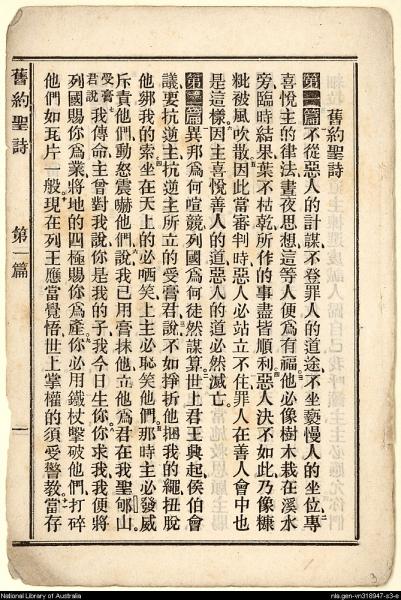 舊約聖詩
第一篇 不從惡人的計謀不登罪人的道途不坐褻慢人的坐位專
喜悅主的律法晝夜思想這等人便爲有福他必像樹木栽在溪水
旁臨時結果葉不枯乾所作的事盡皆順利惡人決不如此乃像糠
粃被風吹散因此當審判時惡人必站立不住罪人在善人會中也
是這樣因主喜悅善人的道惡人的道必然滅亡
第二篇 異邦爲何喧競列國爲何徒然謀算世上君王興起侯伯會
議要抗逆主抗逆主所立的受膏君說不如掙折他捆我的繩扭脫
他綁我的索坐在天上的必哂笑上主必恥笑他們那時主必發威
斥責他們動怒震嚇他們說我已用膏抹他立他爲君在我聖郇山
受膏君說 我傳命主曾對我說你是我的子我今日生你你求我我便將
列國賜你爲業將地的四極賜你爲產你必用鐵杖擊破他們打碎
他們如瓦片一般現在列王應當覺悟世上掌權的須受警教當存
舊約聖詩 第一篇 一
3
National Library of Australia
nla.gen-vn318947-s3-e